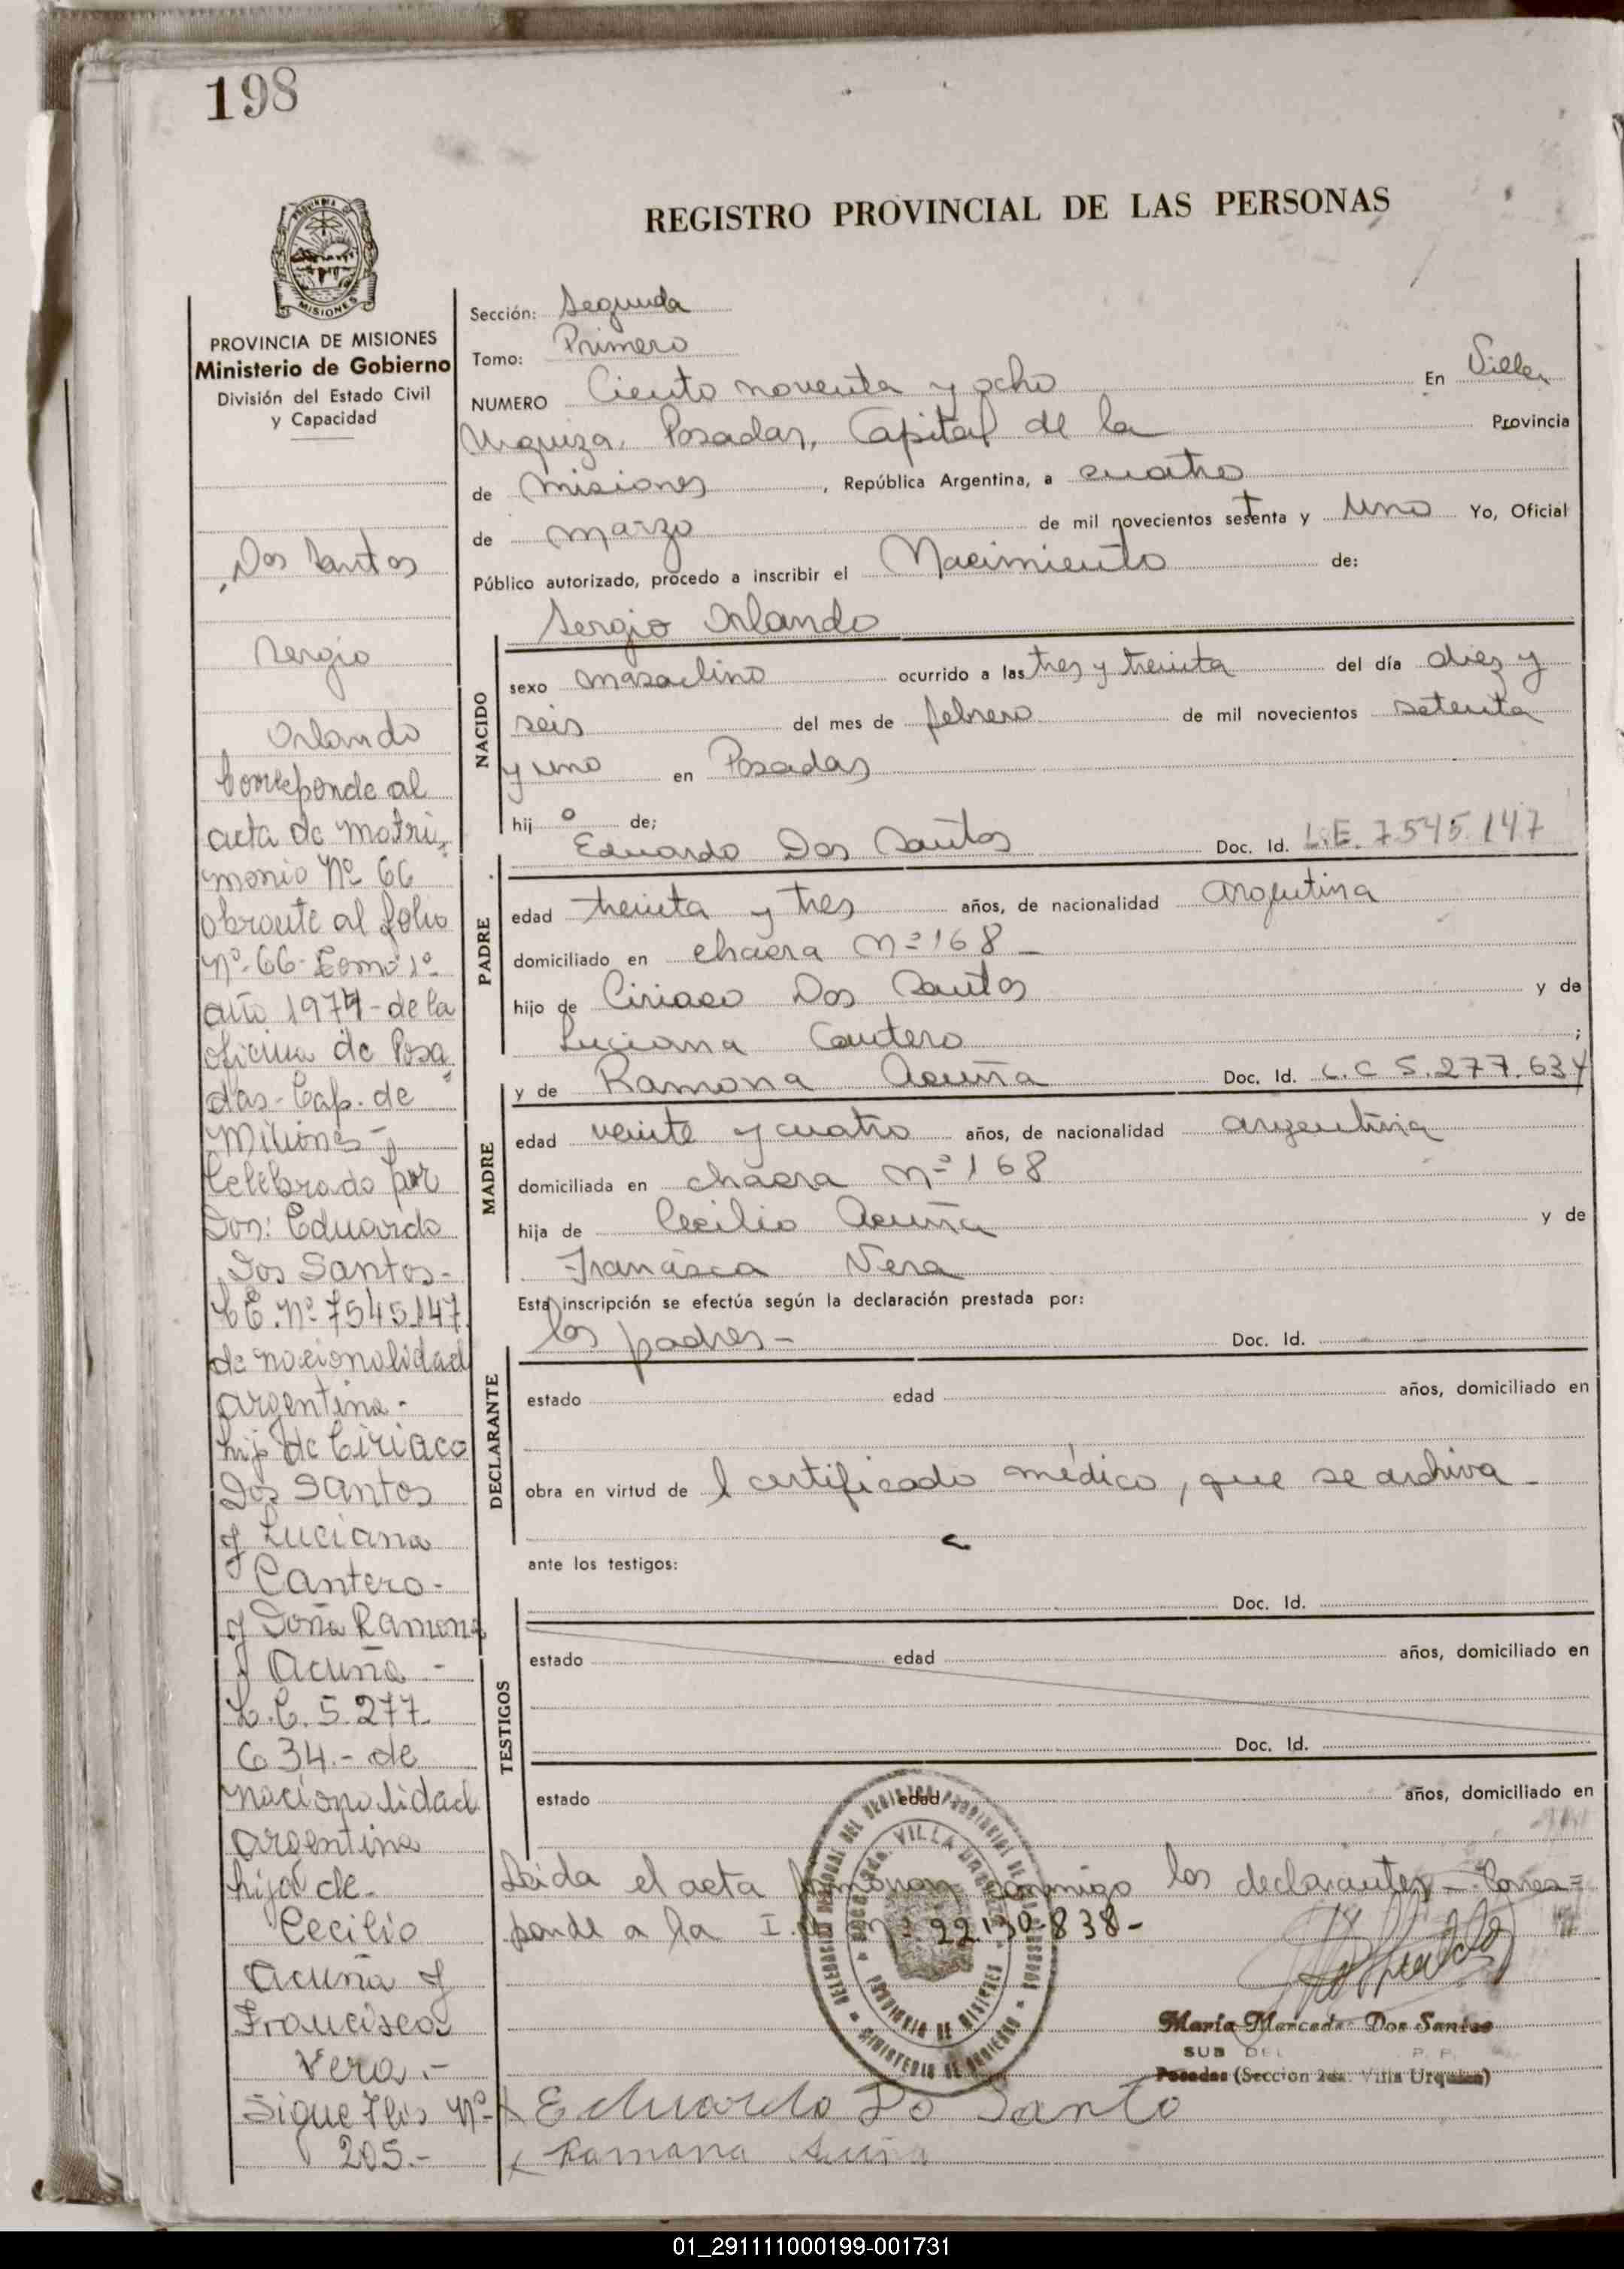 198
REGISTRO PROVINCIAL DE LAS PERSONAS
MISIONES
PROVINCIA DE MISIONES
Ministerio de Gobierno
División del Estado Civil
y Capacidad
Dos Santos
Sergio
Orlando
Corresponde al
acta de matri
monio Nº 66
obrante al folio
Nº 66 Tomo 1º
año 1977 - de la
oficina de Posa
das - Cap. de
Misiones -
Celebrado por
Don: Eduardo
Dos Santos -
Nº 7545147
de nacionalidad
argentina -
hijo de Ciriaco
Dos Santos
y Luciana
Cantero -
y Doña Ramona
Acuña -
L.C. 5.277
634.- de
nacionalidad
argentina
hija de
Cecilio
Acuña y
Francisca
Vera.-
Sigue Nº
205.-
Sección: Segunda
Tomo: Primero
NUMERO Ciento noventa y ocho En Villa
Urquiza. Posadas, Capital de la Provincia
de Misiones, República Argentina, a cuatro
de marzo de mil novecientos setenta y uno Yo, Oficial
Público autorizado, procedo a inscribir el Nacimiento de:
Sergio Orlando
NACIDO
sexo masculino ocurrido a las tres y treinta del día diez y
seis del mes de febrero de mil novecientos setenta
y uno en Posadas
hijo de;
Eduardo Dos Santos Doc. Id. L.E. 7.545.147
PADRE
edad treinta y tres años, de nacionalidad argentina
domiciliado en chacra Nº 168 -
hijo de Ciriaco Dos Santos y de
Luciana Cantero ;
y de Ramona Acuña Doc. Id. L.C 5.277.634
MADRE
edad veinte y cuatro años, de nacionalidad argentina
domiciliada en chacra Nº 168
hija de Cecilio Acuña y de
Francisca Vera
Esta inscripción se efectúa según la declaración prestada por:
los padres - Doc. Id.
DECLARANTE
estado edad años, domiciliado en
obra en virtud de l certificado médico, que se archiva
ante los testigos:
Doc. Id.
TESTIGOS
estado edad años, domiciliado en
Doc. Id.
estado edad años, domiciliado en
Leida el acta conmigo los declarantes - Corres=
ponde a la 22130.838-
VILLA
PROVINCIA DE MISIONES
MINISTERIO DE GOBIERNO
María Mercedes Dos Santos
SUB DEL
Posadas (Seccion 2da. Villa Urquiza)
Eduardo Do Santo
Ramana
01_291111000199-001731